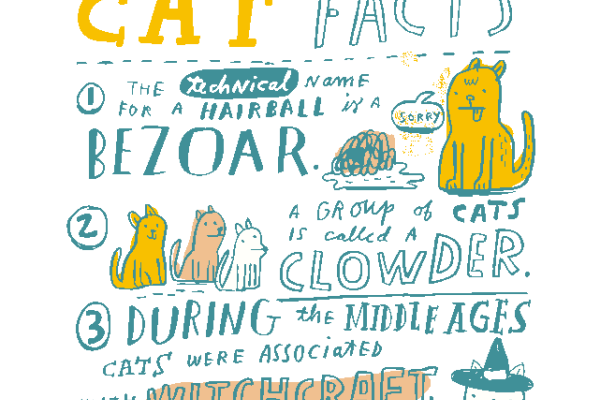 CAT FACTS
1 THE technical NAME
FOR A HAIRBALL is A
BEZOAR.
SORRY
2 A GROUP of CATS
IS called A
CLOWDER.
3 DURING the MIDDLE AGES
CATS WERE ASSOCIATED
WITH WITCHCRAFT.